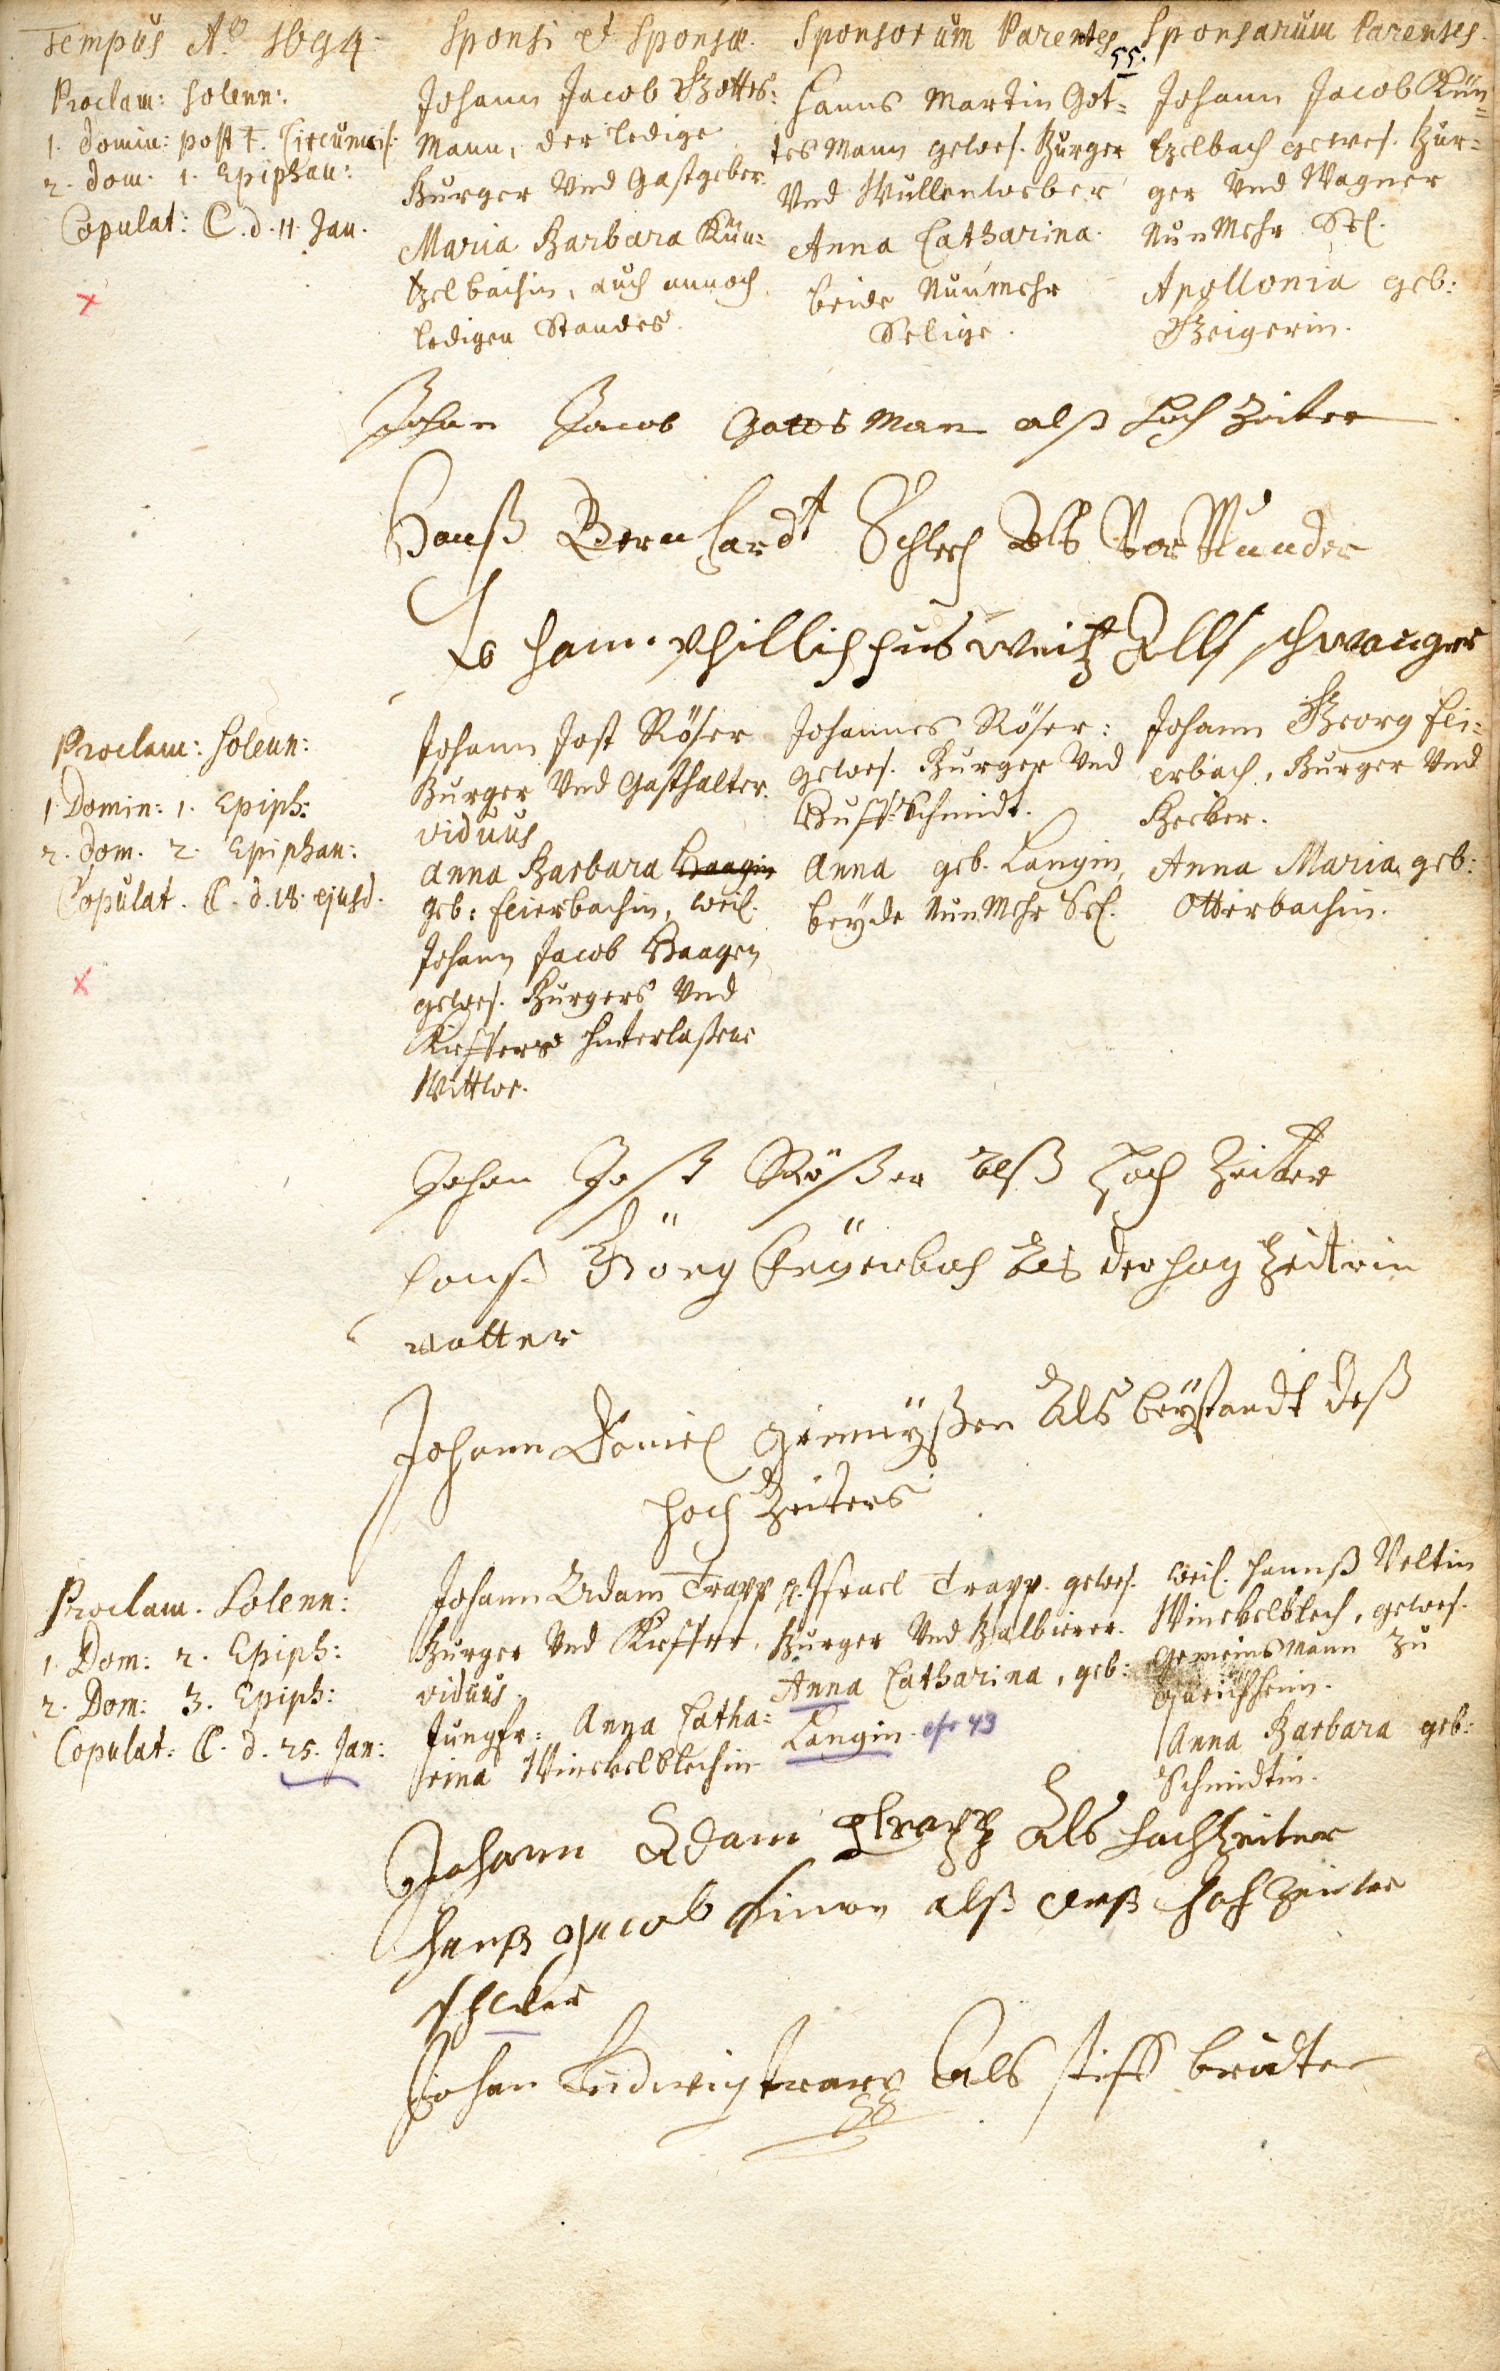 Tempus Aõ 1694.
Sponsi et Sponsæ.
Sponsorum Parentes
Sponsarum Parentes.
55.
Proclam: solenn:
1. Domin: post F. Circumcis.
2. Dom. 1. Epiphan:
Copulat: C. d. 11. Jan.
Johann Jacob Gottes=
Mann, der ledige
Burger Vnd Gastgeber.
Maria Barbara Kün=
tzelbachin, auch annoch
ledigen Standes.
Hanns Martin Got=
tes Mann gewes. Burger
Vnd Wullenweber
Anna Catharina.
beide Nunmehr
Selige.
Johann Jacob Kün=
tzelbach gewes. Bur=
ger Vnd Wagner
NunMehr Sel.
Apollonia geb:
Geigerin.
Johan Jacob Gottes Man alß Hoch Zeiter
Hanß Bernhardt Schlech Als VorMunder
Johann Phillippus Weitz Alls schwanger
Proclam: solenn:
1 Domin: 1. Epiph:
2. Dom. 2. Epiphan:
Copulat. C. d. 18. ejusd.
Johann Jost Röser
Burger Vnd Gasthalter.
viduus
Anna Barbara Haagin
geb: Feierbachin, weil.
Johann Jacob Haagen
gewes. Burgers Vnd
Kieffers hinterlaßene
Wittwe.
Johannes Röser:
gewes. Burger Vnd
Huff-Schmidt.
Anna geb. Langin,
beyde NunMehr Sel.
Johann Georg Fei=
erbach, Burger Vnd
Becker.
Anna Maria geb:
Otterbachin.
Johan Jost Rößer Alß Hoch Zeitter
Hanß Görg Feyerbach Als der hog Zeitrin
vatter
Johann Daniel Als beystandt deß
Hoch Zeiters
Proclam. Solenn:
1. Dom: 2. Epiph:
2. Dom: 3. Epiph:
Copulat: C. d. 25. Jan:
Johann Adam Trapp
Burger Vnd Kieffer,
viduus
Jungfr: Anna Catha=
rina Winckelblechin
p. Israel Trapp gewes.
Burger Vnd Balbierer.
Anna Catharina, geb:
Langin. cfr 43
weil. Hannß Veltin
Winckelblech, gewes.
Gemeinsmann zu
Anna Barbara geb:
Schmidtin.
Johann Adam Trapp Als Hochzeiter
Hanß Jacob Simon alß deß Hoh Zeiter
Johan Ludwig Trapp Als stiff bruter